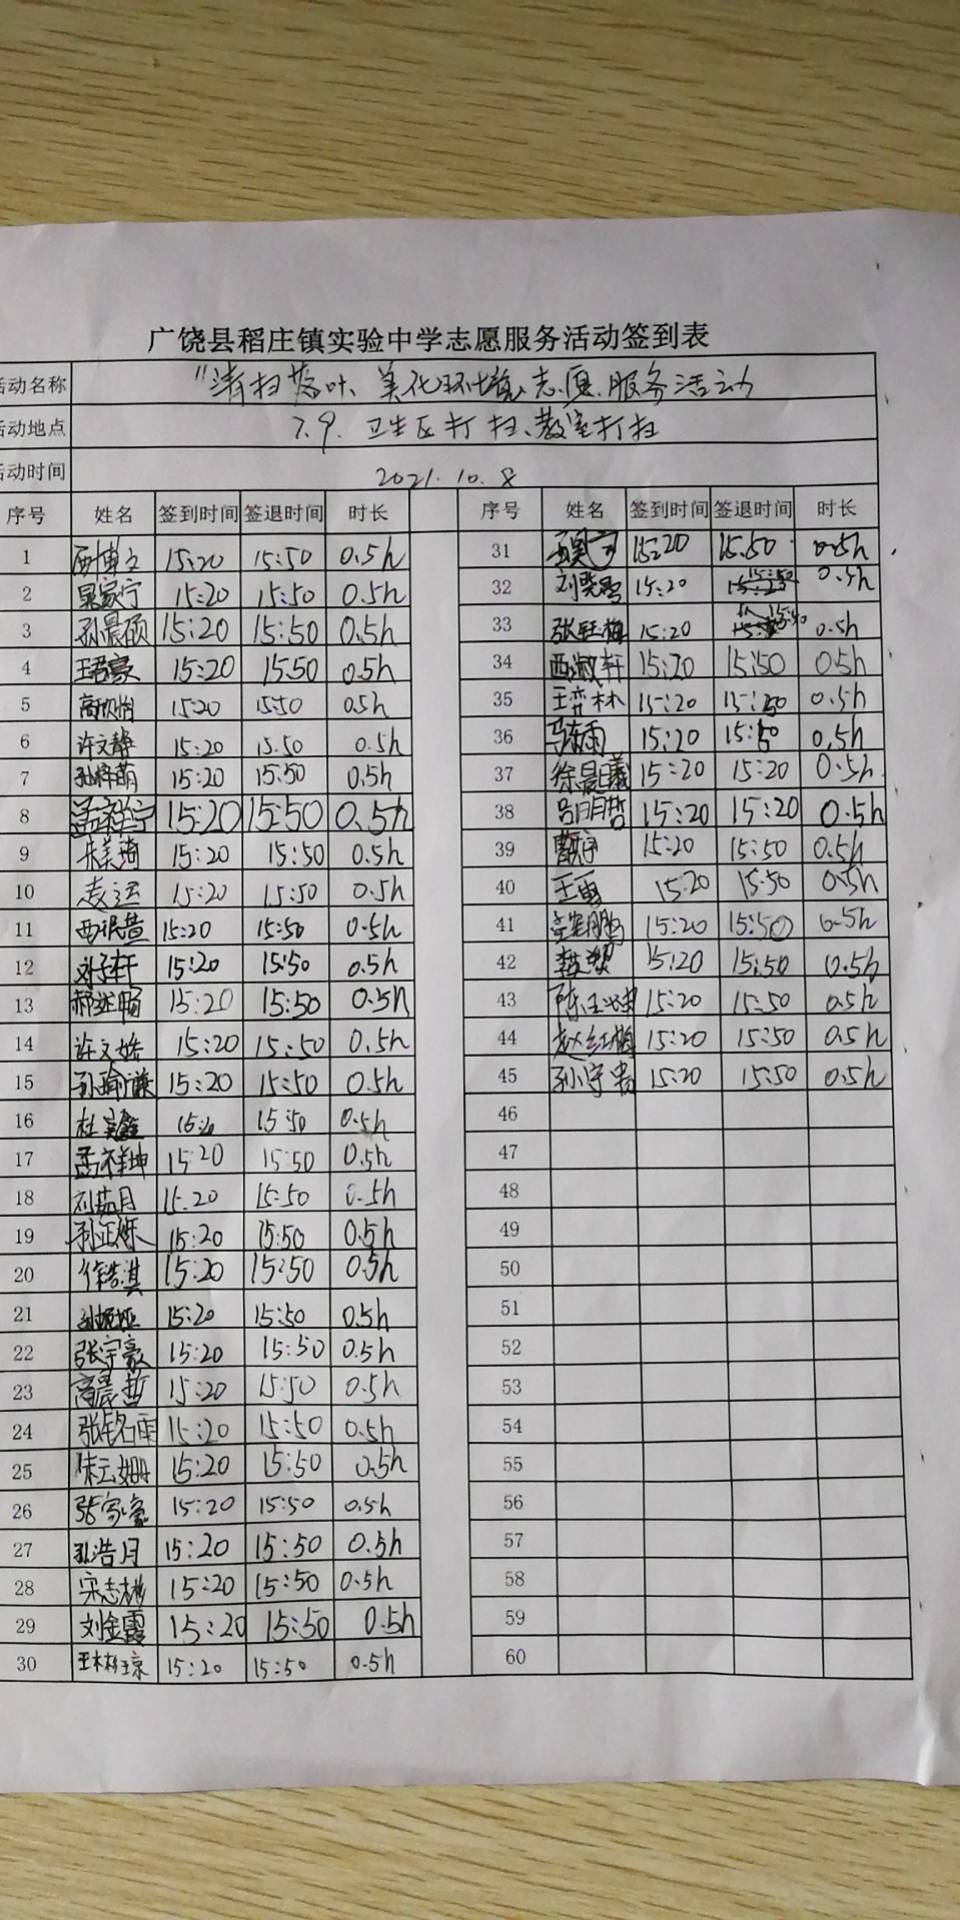 广饶县稻庄镇实验中学志愿服务活动签到表
活动名称 "清扫落叶、美化环境、志愿服务活动
活动地点 7.9. 卫生区打扫、教室打扫
活动时间 2021.10.8
序号 姓名 签到时间 签退时间 时长 序号 姓名 签到时间 签退时间 时长
1 西博文 15:20 15:50 0.5h 31 15:20 15:50 0.5h
2 吴家宁 15:20 15:50 0.5h 32 15:20 15:50 0.5h
3 孙晨硕 15:20 15:50 0.5h 33 张钰梅 15:20 0.5h
4 王君豪 15:20 15:50 0.5h 34 西淑轩 15:20 15:50 0.5h
5 高欣怡 15:20 15:50 0.5h 35 王弈林 15:20 15:50 0.5h
6 许文静 15:20 15:50 0.5h 36 15:20 15:50 0.5h
7 孙梓萌 15:20 15:50 0.5h 37 徐晨曦 15:20 15:20 0.5h
8 孟祥宁 15:20 15:50 0.5h 38 吕明哲 15:20 15:20 0.5h
9 朱美琦 15:20 15:50 0.5h 39 15:20 15:50 0.5h
10 袁运 15:20 15:50 0.5h 40 王勇 15:20 15:50 0.5h
11 15:20 15:50 0.5h 41 15:20 15:50 0.5h
12 刘子轩 15:20 15:50 0.5h 42 15:20 15:50 0.5h
13 15:20 15:50 0.5h 43 陈玉坤 15:20 15:50 0.5h
14 许文皓 15:20 15:50 0.5h 44 赵红梅 15:20 15:50 0.5h
15 孙瑜谦 15:20 15:50 0.5h 45 15:20 15:50 0.5h
16 15:50 0.5h 46
17 孟祥坤 15:20 15:50 0.5h 47
18 刘茹月 15:20 15:50 0.5h 48
19 15:20 15:50 0.5h 49
20 徐浩淇 15:20 15:50 0.5h 50
21 15:20 15:50 0.5h 51
22 张宇豪 15:20 15:50 0.5h 52
23 高晨哲 15:20 15:50 0.5h 53
24 张铭雨 15:20 15:50 0.5h 54
25 朱云姗 15:20 15:50 0.5h 55
26 张家豪 15:20 15:50 0.5h 56
27 孙浩月 15:20 15:50 0.5h 57
28 宋志彬 15:20 15:50 0.5h 58
29 刘金霞 15:20 15:50 0.5h 59
30 15:20 15:50 0.5h 60